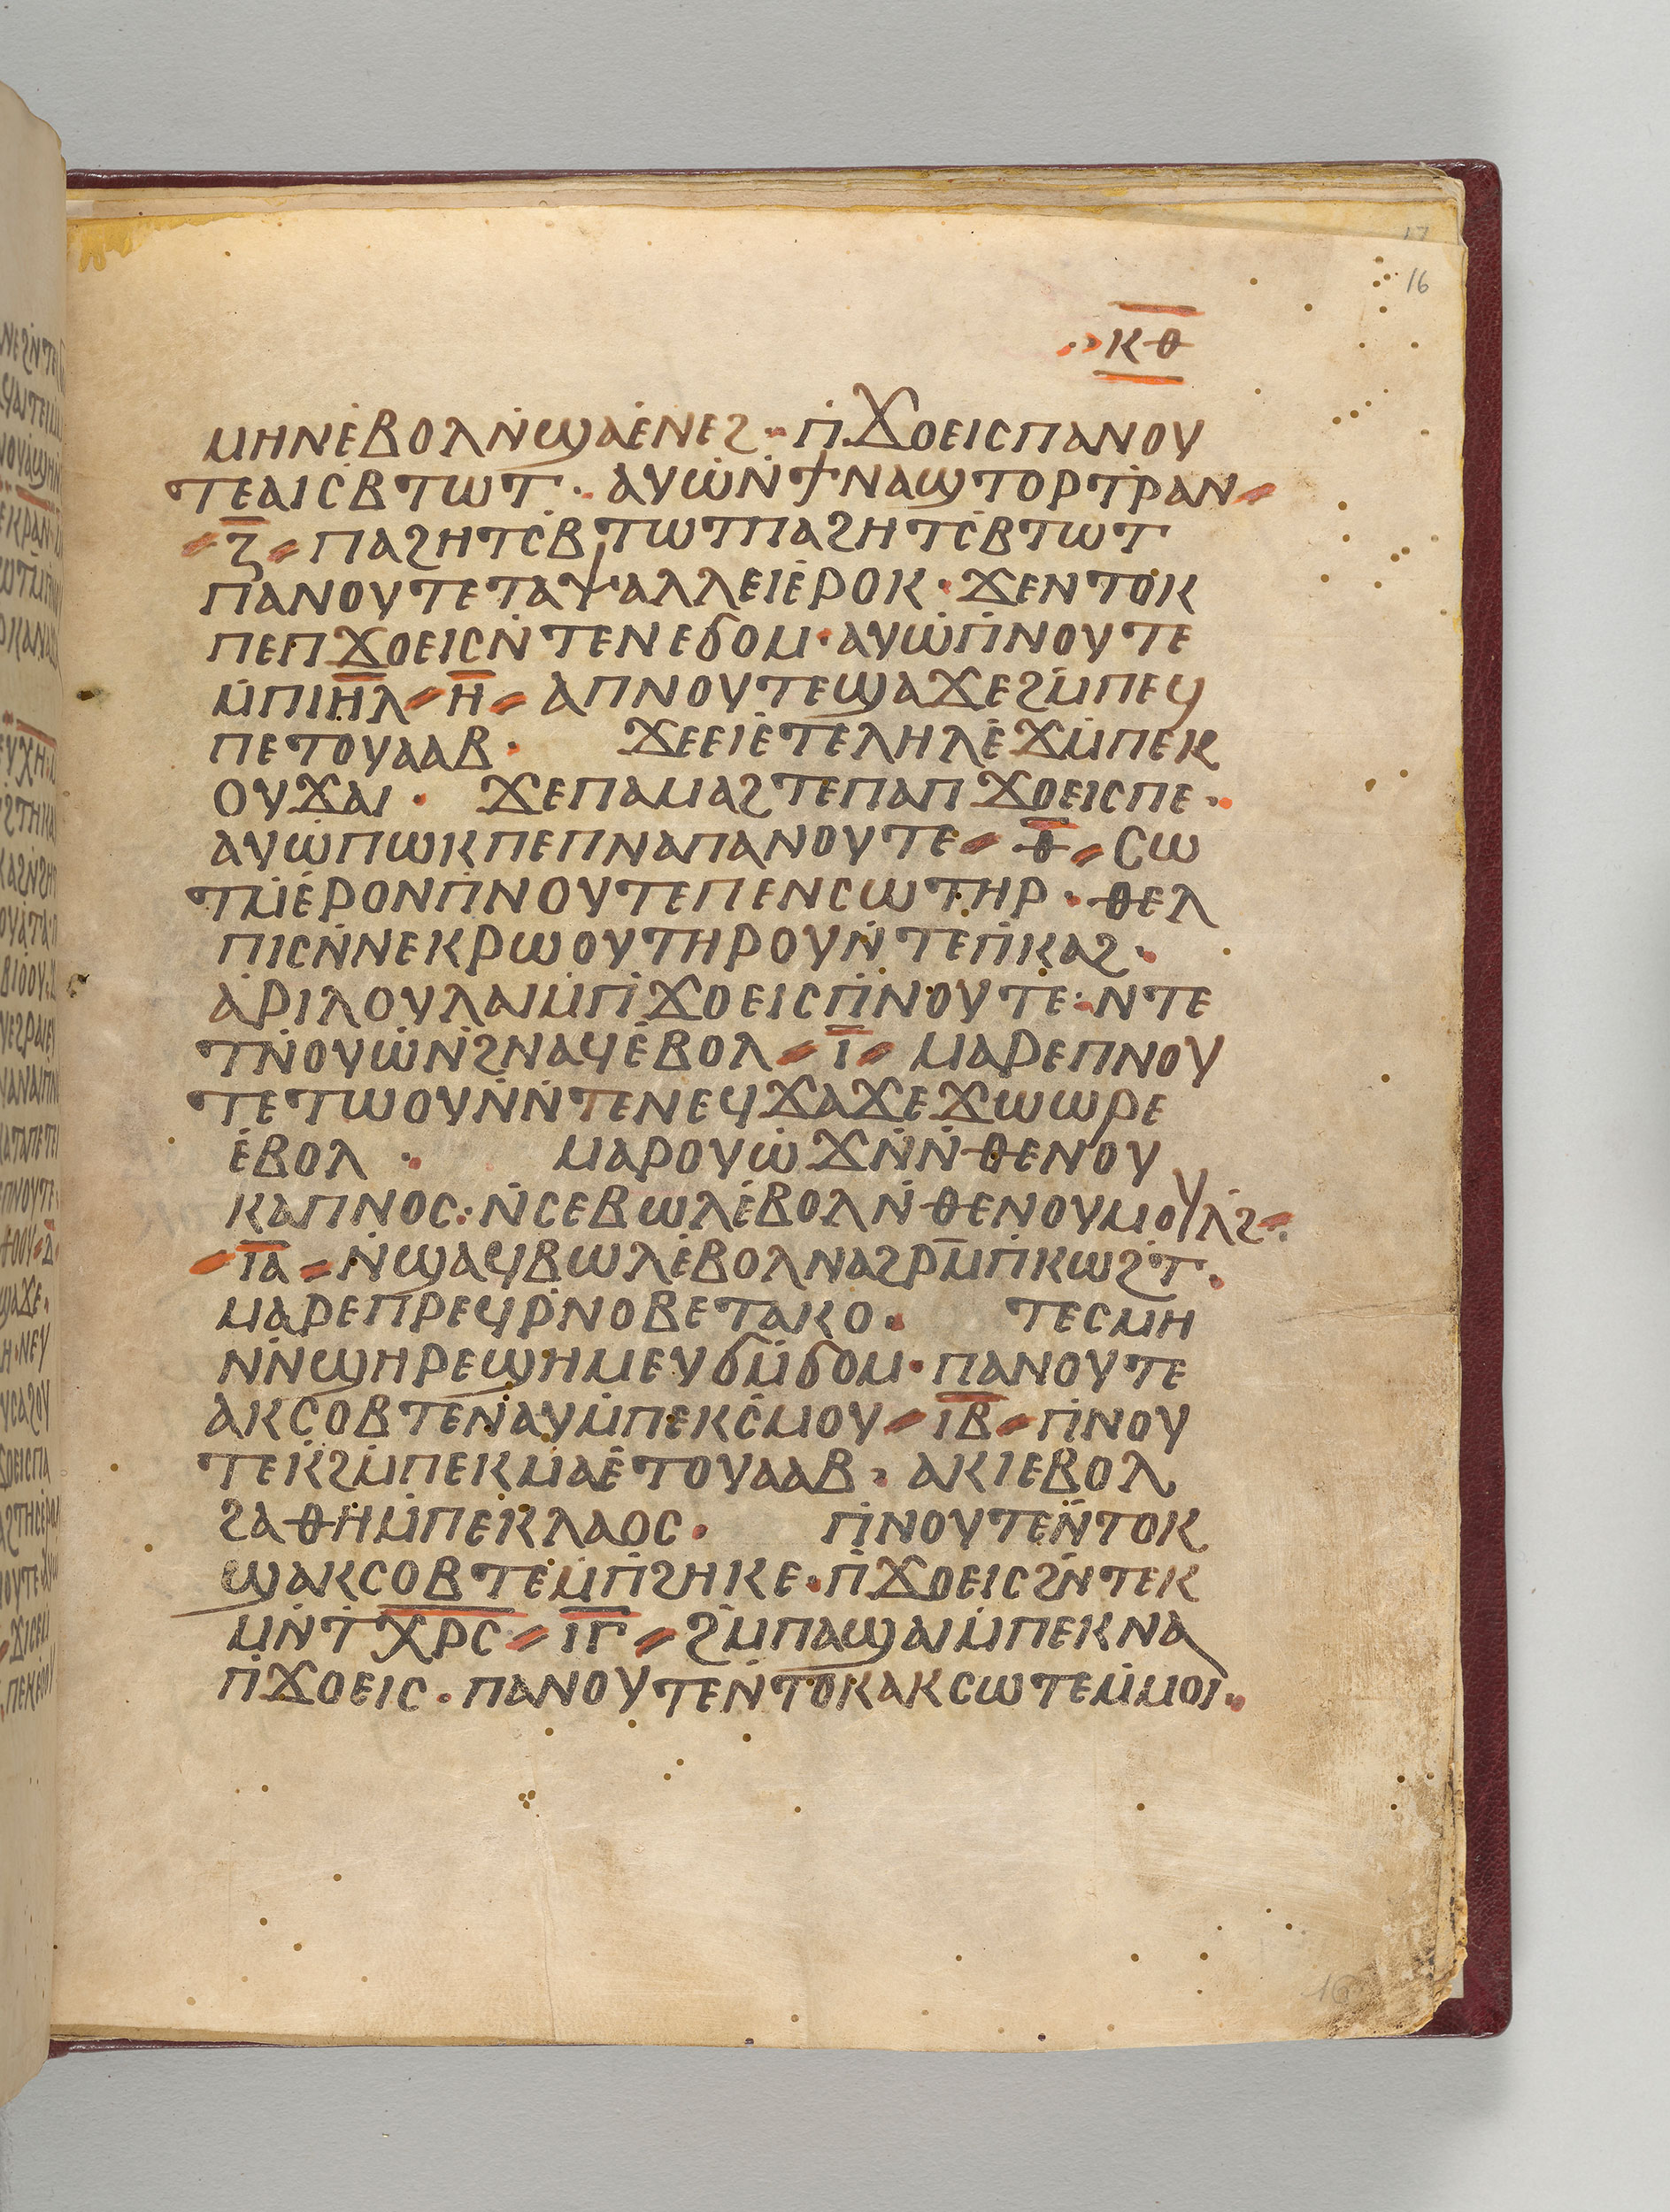 17
16
ⲕⲑ
ⲙⲏⲛⲉ̇ⲃⲟⲗⲛ̇ϣⲁⲉ̇ⲛⲉϩ · ⲡ̇ϫⲟⲉⲓⲥⲡⲁⲛⲟⲩ
ⲧⲉⲁⲓⲥ̇ⲃⲧⲱⲧ · ⲁⲩⲱ̇ⲛ̇ϯⲛⲁϣⲧⲟⲣⲧⲣ̇ⲁⲛ
ⲍ̅ ⲡⲁϩⲏⲧⲥ̇ⲃⲧⲱⲧⲡⲁϩⲏⲧⲥ̇ⲃⲧⲱⲧ
ⲡⲁⲛⲟⲩⲧⲉⲧⲁⲯⲁⲗⲗⲉⲓⲉ̇ⲣⲟⲕ · ϫⲉⲛⲧⲟⲕ
ⲡⲉⲡϫⲟⲉⲓⲥⲛ̇ⲧⲉⲛⲉϭⲟⲙ · ⲁⲩⲱ̇ⲡ̇ⲛⲟⲩⲧⲉ
ⲙ̇ⲡⲓⲏ̅ⲗ ⲏ̅ ⲁⲡⲛⲟⲩⲧⲉϣⲁϫⲉϩⲙ̇ⲡⲉϥ
ⲡⲉⲧⲟⲩⲁⲁⲃ · ϫⲉⲉⲓⲉ̇ⲧⲉⲗⲏⲗⲉ̇ϫⲙ̇ⲡⲉⲕ
ⲟⲩϫⲁⲓ · ϫⲉⲡⲁⲙⲁϩⲧⲉⲡⲁⲡϫⲟⲉⲓⲥⲡⲉ ·
ⲁⲩⲱ̇ⲡⲱⲕⲡⲉⲡⲛⲁⲡⲁⲛⲟⲩⲧⲉ ⲑ̅ ⲥⲱ
ⲧⲙ̇ⲉ̇ⲣⲟⲛⲡ̇ⲛⲟⲩⲧⲉⲡⲉⲛⲥⲱⲧⲏⲣ · ⲑⲉⲗ
ⲡⲓⲥⲛ̇ⲛⲉⲕⲣⲱⲟⲩⲧⲏⲣⲟⲩⲛ̇ⲧⲉⲡ̇ⲕⲁϩ ·
ⲁ̇ⲣⲓⲗⲟⲩⲗⲁⲓⲙ̇ⲡ̇ϫⲟⲉⲓⲥⲡ̇ⲛⲟⲩⲧⲉ · ⲛⲧⲉ
ⲧⲛ̇ⲟⲩⲱ̇ⲛ̇ϩⲛⲁϥⲉ̇ⲃⲟⲗ ⲓ̅ ⲙⲁⲣⲉⲡⲛⲟⲩ
ⲧⲉⲧⲱⲟⲩⲛ̇ⲛ̇ⲧⲉⲛⲉϥϫⲁϫⲉϫⲱⲱⲣⲉ
ⲉ̇ⲃⲟⲗ · ⲙⲁⲣⲟⲩⲱ̇ϫⲛ̇ⲛ̇ⲑⲉⲛⲟⲩ
ⲕⲁⲡⲛⲟⲥ : ⲛ̇ⲥⲉⲃⲱⲗⲉ̇ⲃⲟⲗⲛ̇ⲑⲉⲛⲟⲩⲙⲟⲩⲗϩ̇
ⲓ̅ⲁ̅ ⲛ̇ϣⲁϥⲃⲱⲗⲉ̇ⲃⲟⲗⲛⲁϩⲣⲙ̅ⲡ̇ⲕⲱϩⲧ̇ ·
ⲙⲁⲣⲉⲡⲣⲉϥⲣ̇ⲛⲟⲃⲉⲧⲁⲕⲟ · ⲧⲉⲥⲙⲏ
ⲛⲛ̇ϣⲏⲣⲉϣⲏⲙⲉⲩϭⲙ̇ϭⲟⲙ · ⲡⲁⲛⲟⲩⲧⲉ
ⲁⲕⲥⲟⲃⲧⲉⲛ̇ⲁⲩⲙ̇ⲡⲉⲕⲥ̇ⲙⲟⲩ ⲓ̅ⲃ̅ ⲡ̇ⲛⲟⲩ
ⲧⲉⲕ̇ϩⲙ̇ⲡⲉⲕⲙ̇ⲁⲉ̇ⲧⲟⲩⲁⲁⲃ · ⲁⲕⲓⲉⲃⲟⲗ
ϩⲁⲑⲏⲙ̇ⲡⲉⲕⲗⲁⲟⲥ · ⲡ̇ⲛⲟⲩⲧⲉⲛ̇ⲧⲟⲕ
ϣⲁⲕⲥⲟⲃⲧⲉⲙ̇ⲡ̇ϩⲏⲕⲉ · ⲡ̇ϫⲟⲉⲓⲥϩⲛ̇ⲧⲉⲕ
ⲙⲛ̇ⲧⲭ̅ⲣ̅ⲥ̅ ⲓ̅ⲅ̅ ϩⲙ̇ⲡⲁϣⲁⲓⲙ̇ⲡⲉⲕⲛⲁ
ⲡ̇ϫⲟⲉⲓⲥ · ⲡⲁⲛⲟⲩⲧⲉⲛ̇ⲧⲟⲕⲁⲕⲥⲱⲧⲉⲙ̇ⲙⲟⲓ ·
16